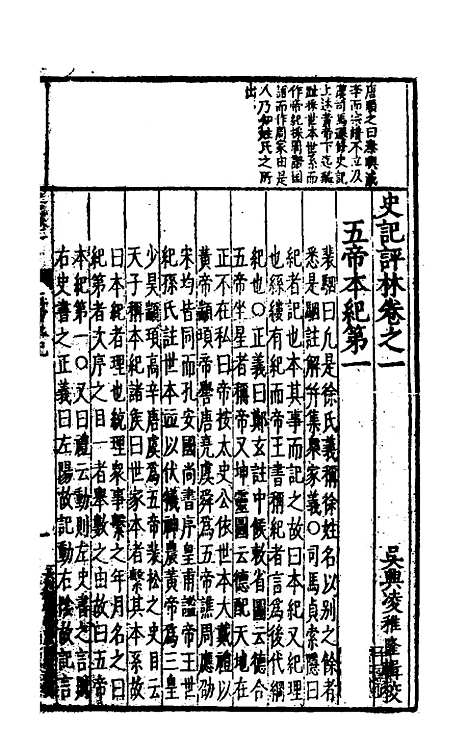 史記評林卷之一
吳興凌稚隆輯校
五帝本紀第一
裴駰曰凡是徐氏義稱徐姓名以別之餘者
悉是駰註解幷集眾家義○司馬貞索隱曰
紀者記也本其事而記之故曰本紀又紀理
也絲縷有紀而帝王書稱紀者言為後代綱
紀也○正義曰鄭玄註中候敕省圖云德合
五帝坐星者稱帝又坤靈圖云德配天地在
正不在私曰帝按太史公依世本大戴禮以
黃帝顓頊帝嚳唐堯虞舜為五帝譙周應劭
宋均皆同而孔安國尚書序皇甫謐帝王世
紀孫氏註世本並以伏犧神農黃帝為三皇
少昊顓頊高辛唐虞為五帝裴松之史目云
天子稱本紀諸侯曰世家本者繫其本系故
曰本紀者理也統理眾事繫之年月名之曰
紀第者次序之目一者舉數之由故曰五帝
本紀第一○又曰禮云動則左史書之言則
右史書之正義曰左陽故記動右陰故記言
唐順之曰秦興滅
學而宗緒不立及
漢司馬遷修史記
上述黃帝下迄麟
趾採世本世系而
作帝紀採周譜國
語而作周家由是
人乃知姓氏之所
出